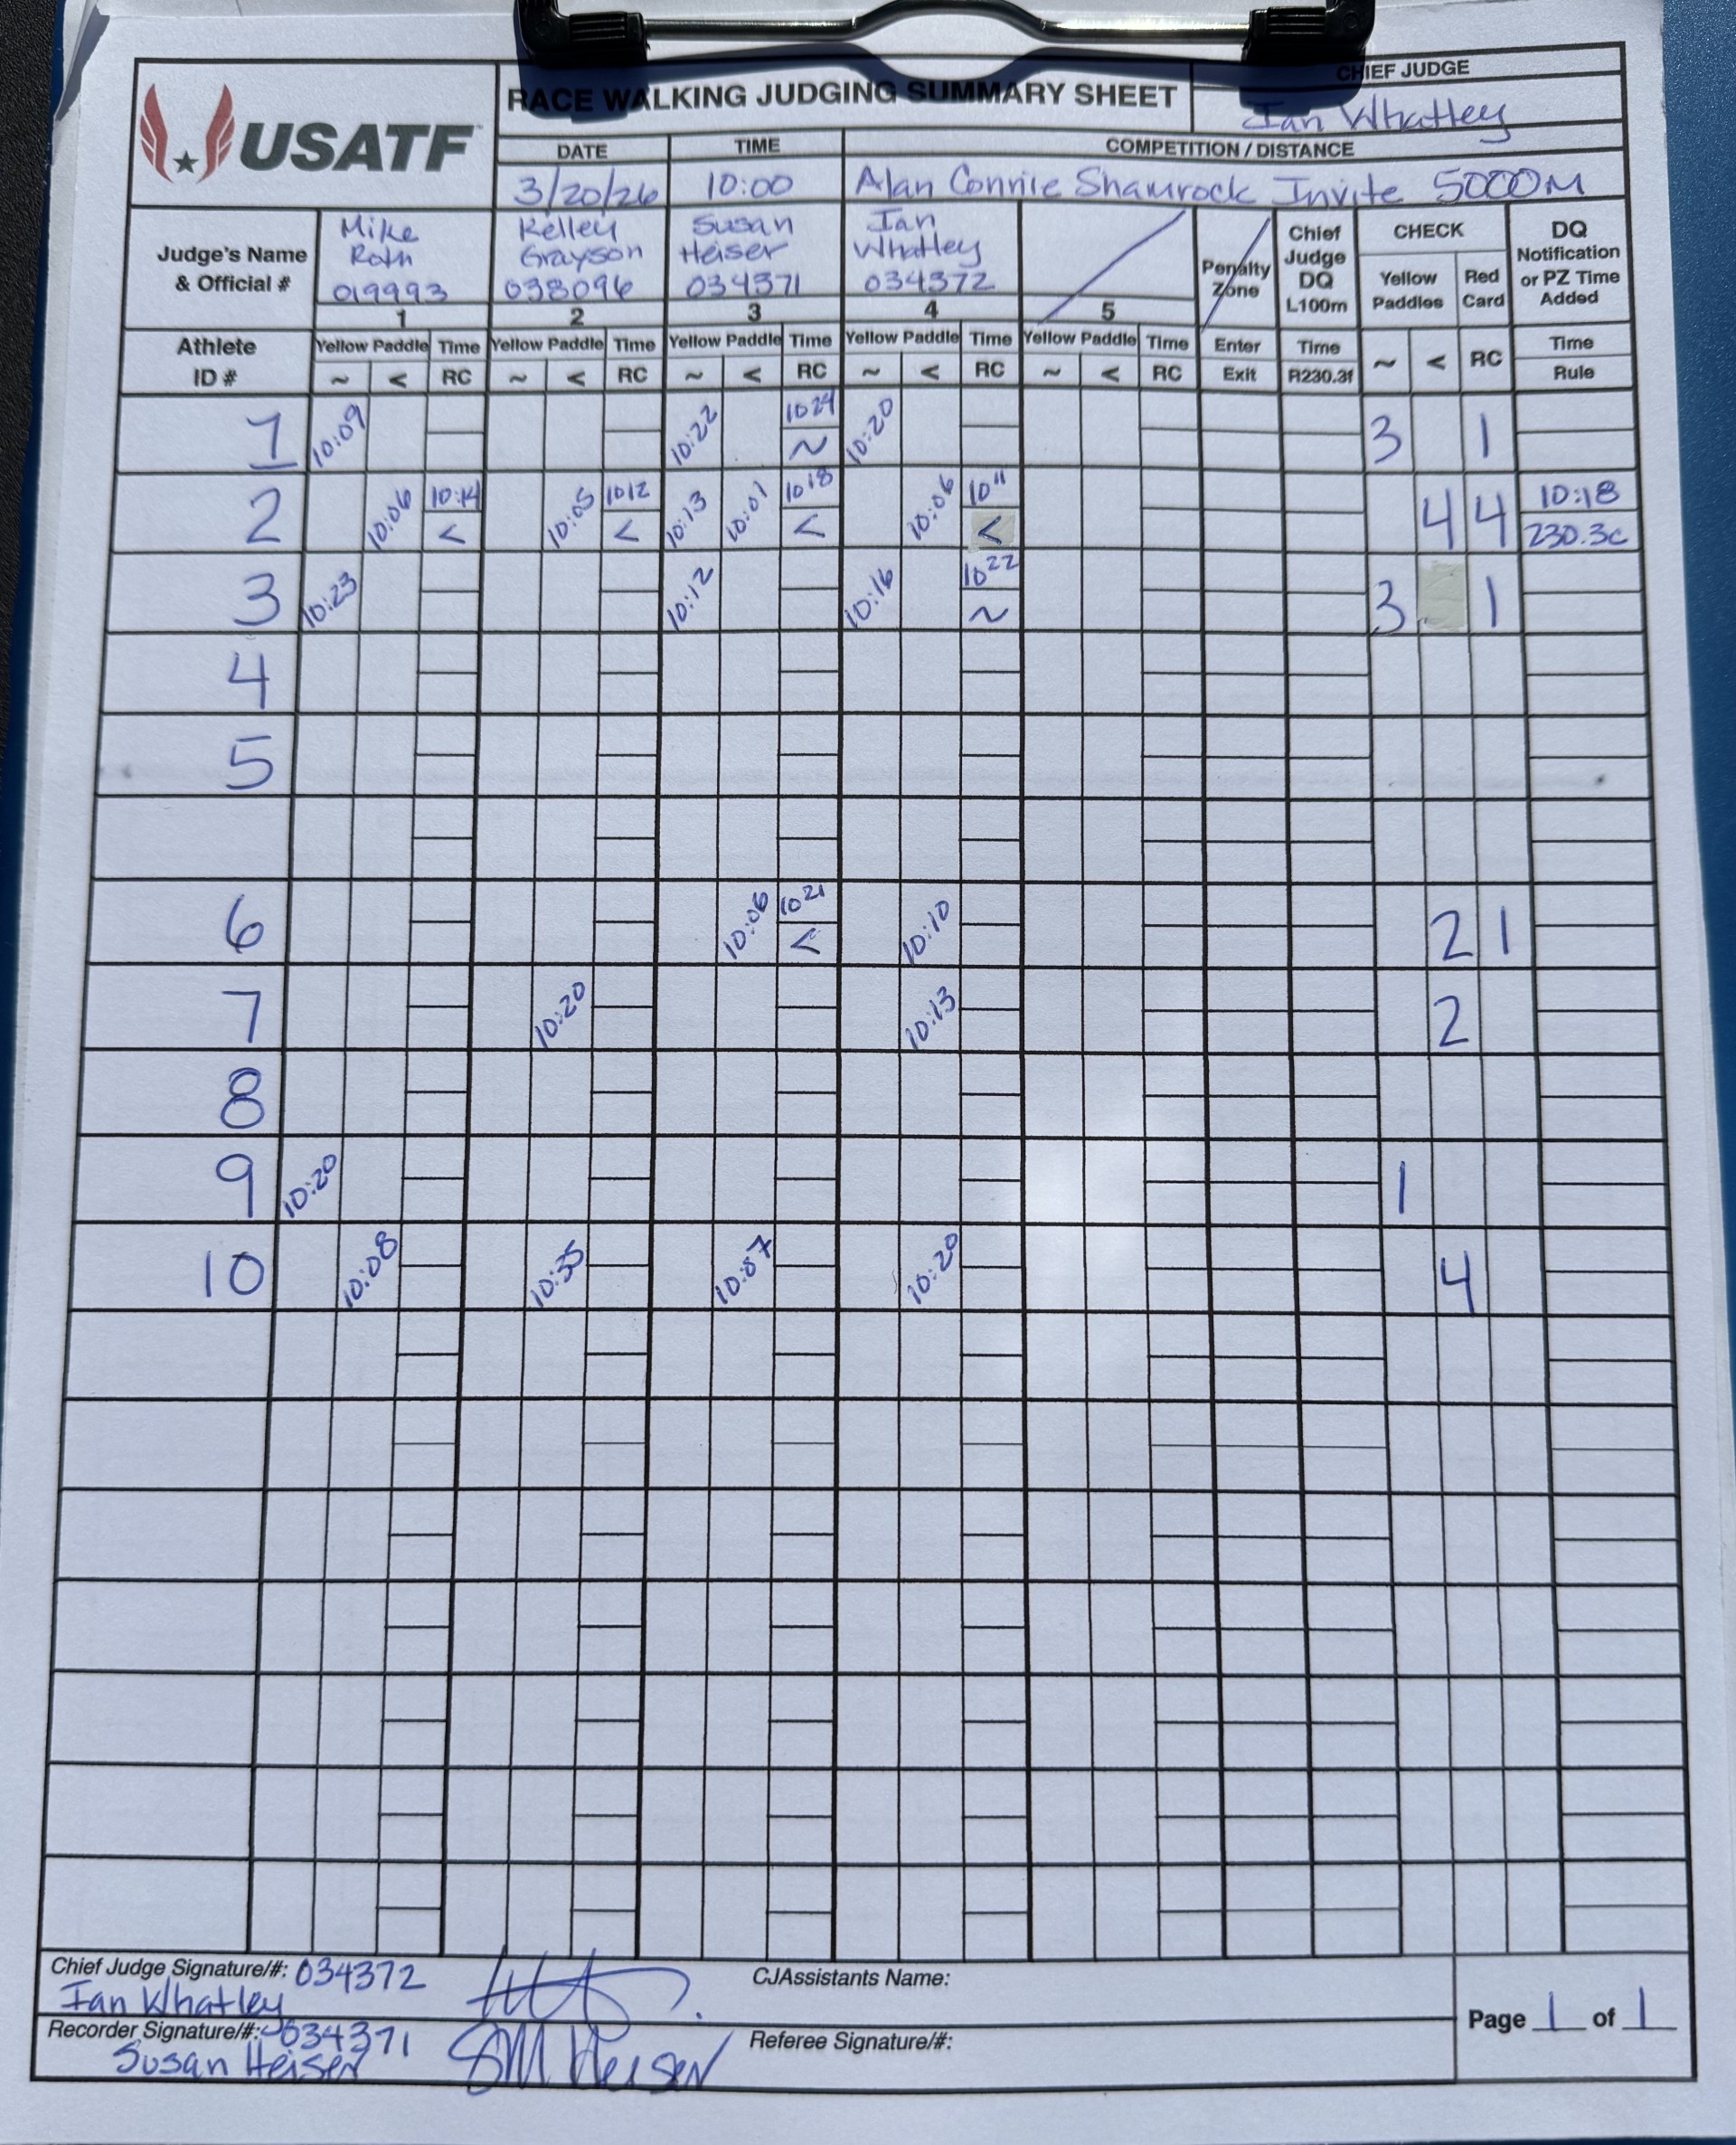 CHIEF JUDGE
RACE WALKING JUDGING SUMMARY SHEET
Ian Whatley
USATF
DATE TIME COMPETITION / DISTANCE
3/20/26 10:00 Alan Connie Shamrock Invite 5000M
Judge's Name & Official #
Mike Roth 019993 1
Kelley Grayson 038096 2
Susan Heiser 034371 3
Ian Whatley 034372 4
5
Penalty Zone
Chief Judge DQ L100m
CHECK
Yellow Paddles Red Card
DQ Notification or PZ Time Added
Athlete ID #
Yellow Paddle Time Yellow Paddle Time Yellow Paddle Time Yellow Paddle Time Yellow Paddle Time Enter Time Time
~ < RC ~ < RC ~ < RC ~ < RC ~ < RC Exit R230.3f ~ < RC Rule
1 10:09 10:22 10 24 ~ 10:20 3 1
2 10:06 10:14 < 10:05 10 12 < 10:13 10:01 10 18 < 10:06 10 11 < 4 4 10:18 230.3c
3 10:23 10:12 10:16 10 22 ~ 3 1
4
5
6 10:06 10 21 < 10:10 2 1
7 10:20 10:13 2
8
9 10:20 1
10 10:08 10:35 10:07 10:20 4
Chief Judge Signature/#: 034372
Ian Whatley
CJAssistants Name:
Recorder Signature/#: 034371
Susan Heiser SM Heiser
Referee Signature/#:
Page 1 of 1